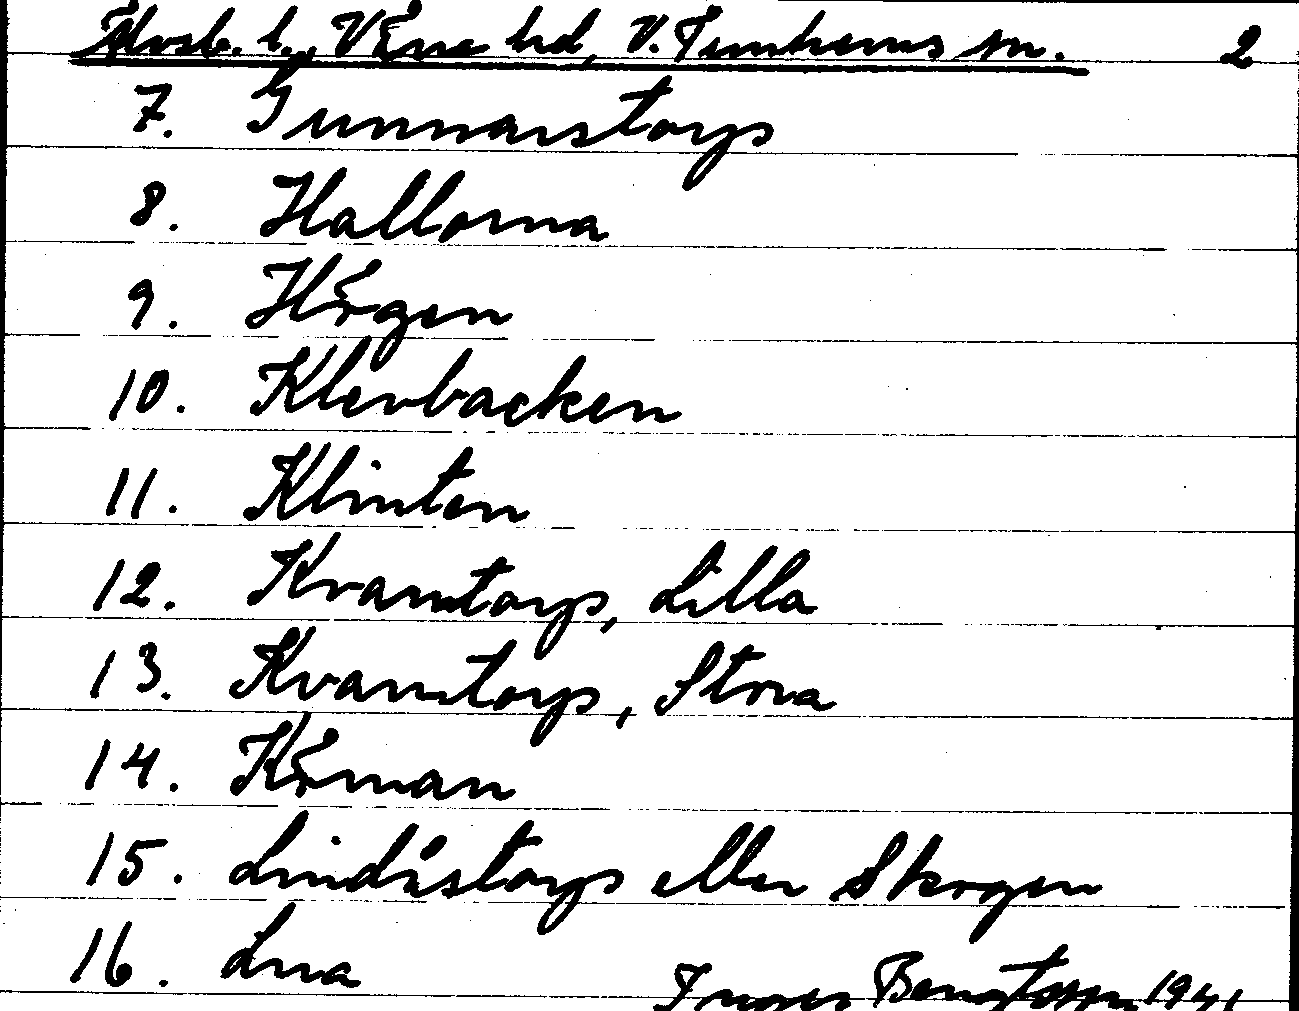 Älvsb. l., Väne hd, V. Tunhems sn. 2
7. Gunnarstorp
8. Hallorna
9. Högen
10. Klevbacken
11. Klinten
12. Kvarntorp, Lilla
13. Kvarntorp, Stora
14. Kroman
15. Lindåstorp eller Skogen
16. Lua
Inger Bengtsson 1941